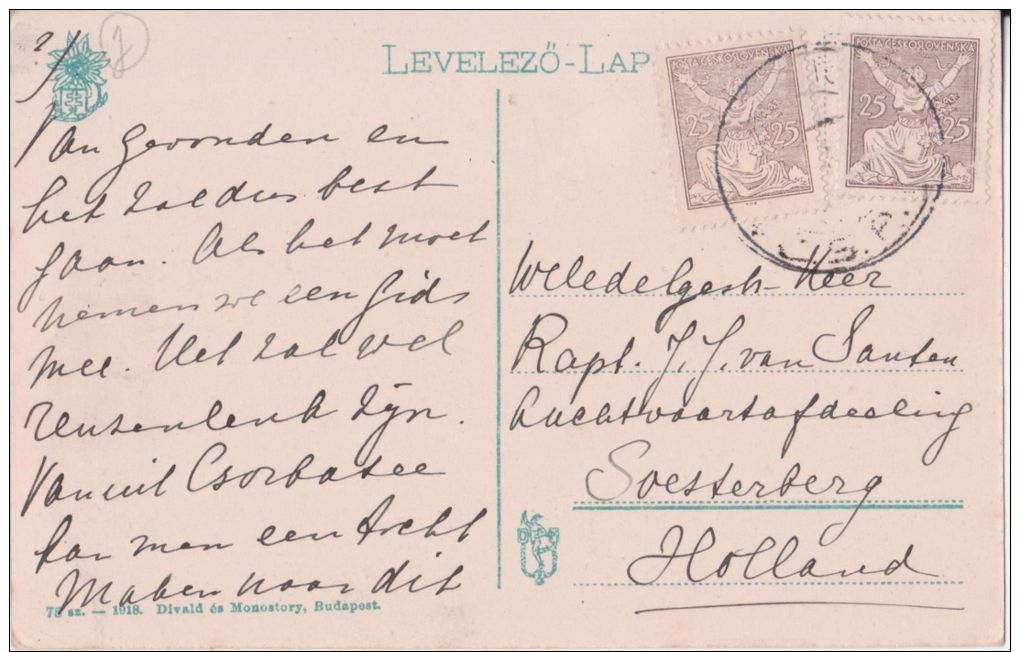 2/
J
LEVELEZŐ-LAP
POSTA ČESKOSLOVENSKÁ
25 25
POSTA ČESKOSLOVENSKÁ
25 25
Van gevonden en
het zal dus best
gaan. Als het moet
nemen we een gids
mee. Het zal wel
reuzenleuk zijn.
Vanuit Csorbasee
kan men een tocht
maken naar dit
Weledelgestr. Heer
Kapt. J. J. van Santen
Luchtvaartafdeeling
Soesterberg
Holland
D M
1918. Divald és Monostory, Budapest.